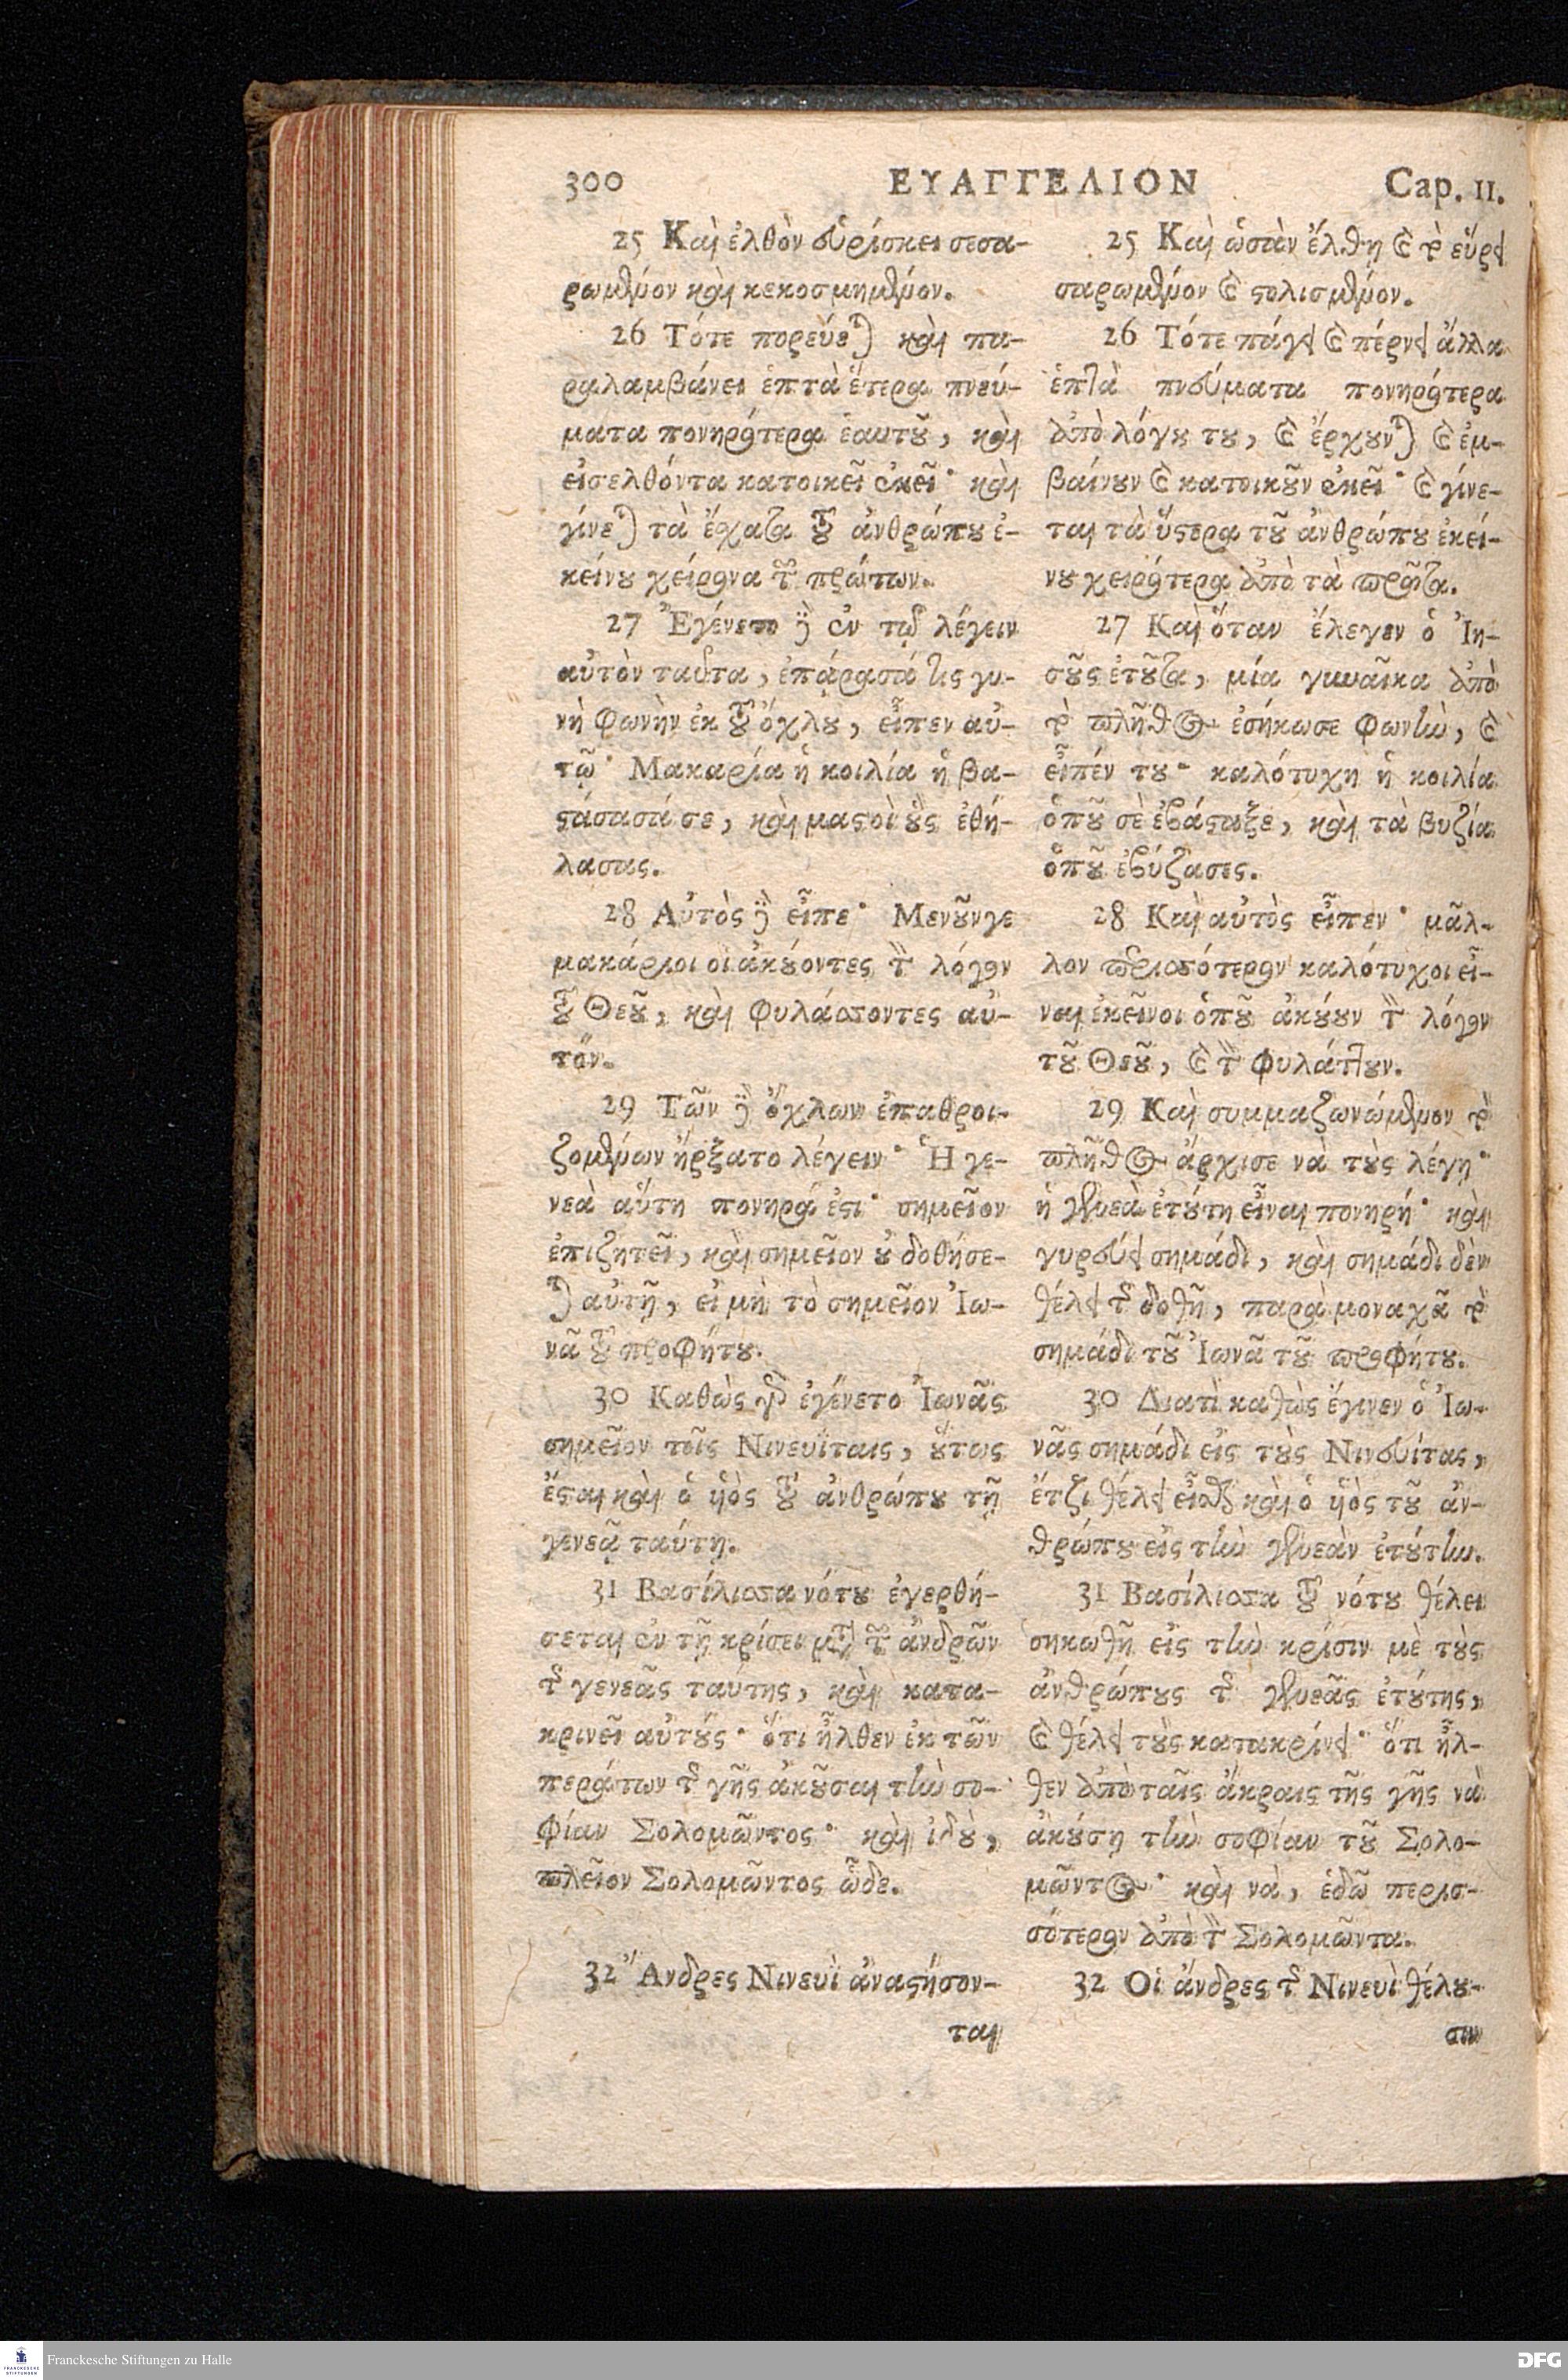 300 ΕΥΑΓΓΕΛΙΟΝ Cap. 11.
25 Καὶ ἐλθὸν εὑρίσκει σεσα-
ρωμένον καὶ κεκοσμημένον.
26 Τότε πορεύεται καὶ πα-
ραλαμβάνει ἑπτὰ ἕτερα πνεύ-
ματα πονηρότερα ἑαυτοῦ, καὶ
εἰσελθόντα κατοικεῖ ἐκεῖ· καὶ
γίνεται τὰ ἔσχατα τοῦ ἀνθρώπου ἐ-
κείνου χείρονα τῶν πρώτων.
27 Ἐγένετο δὲ ἐν τῷ λέγειν
αὐτὸν ταῦτα, ἐπάρασά τις γυ-
νὴ φωνὴν ἐκ τοῦ ὄχλου, εἶπεν αὐ-
τῷ· Μακαρία ἡ κοιλία ἡ βα-
στάσασά σε, καὶ μαστοὶ οὓς ἐθή-
λασας.
28 Αὐτὸς δὲ εἶπε· Μενοῦνγε
μακάριοι οἱ ἀκούοντες τὸν λόγον
τοῦ Θεοῦ, καὶ φυλάσσοντες αὐ-
τόν.
29 Τῶν δὲ ὄχλων ἐπαθροι-
ζομένων ἤρξατο λέγειν· Ἡ γε-
νεὰ αὕτη πονηρά ἐστι· σημεῖον
ἐπιζητεῖ, καὶ σημεῖον οὐ δοθήσε-
ται αὐτῇ, εἰ μὴ τὸ σημεῖον Ἰω-
νᾶ τοῦ προφήτου.
30 Καθὼς γὰρ ἐγένετο Ἰωνᾶς
σημεῖον τοῖς Νινευΐταις, οὕτως
ἔσται καὶ ὁ ὑὸς τοῦ ἀνθρώπου τῇ
γενεᾷ ταύτῃ.
31 Βασίλισσα νότου ἐγερθή-
σεται ἐν τῇ κρίσει μετὰ τῶν ἀνδρῶν
τῆς γενεᾶς ταύτης, καὶ κατα-
κρινεῖ αὐτούς· ὅτι ἦλθεν ἐκ τῶν
περάτων τῆς γῆς ἀκοῦσαι τὴν σο-
φίαν Σολομῶντος· καὶ ἰδού,
πλεῖον Σολομῶντος ὧδε.
32 Ἄνδρες Νινευῒ ἀναστήσον-
ται
25 Καὶ ὡσὰν ἔλθῃ καὶ τὸ εὕρει
σαρωμένον καὶ στολισμένον.
26 Τότε πάγει καὶ πέρνει ἄλλα
ἑπτὰ πνεύματα πονηρότερα
ἀπὸ λόγου του, καὶ ἔρχουνται καὶ ἐμ-
βαίνουν καὶ κατοικοῦν ἐκεῖ· καὶ γίνε-
ται τὰ ὕστερα τοῦ ἀνθρώπου ἐκεί-
νου χειρότερα ἀπὸ τὰ πρῶτα.
27 Καὶ ὅταν ἔλεγεν ὁ Ἰη-
σοῦς ἐτοῦτα, μία γυναῖκα ἀπὸ
τὸ πλῆθος ἐσήκωσε φωνὴν, καὶ
εἶπέν του· καλότυχη ἡ κοιλία
ὁποῦ σὲ ἐβάσταξε, καὶ τὰ βυζία
ὁποῦ ἐβύζασες.
28 Καὶ αὐτὸς εἶπεν· μᾶλ-
λον περισσότερον καλότυχοι εἶ-
ναι ἐκεῖνοι ὁποῦ ἀκούουν τὸν λόγον
τοῦ Θεοῦ, καὶ τὸν φυλάττουν.
29 Καὶ συμμαζωνώμενον τὸ
πλῆθος ἄρχισε νὰ τοὺς λέγῃ·
ἡ γενεὰ ἐτούτη εἶναι πονηρή· καὶ
γυρεύει σημάδι, καὶ σημάδι δὲν
θέλει τῆς δοθῆ, παρὰ μοναχᾶ τὸ
σημάδι τοῦ Ἰωνᾶ τοῦ προφήτου.
30 Διατὶ καθὼς ἔγινεν ὁ Ἰω-
νᾶς σημάδι εἰς τοὺς Νινευίτας,
ἔτζι θέλει εἶσθαι καὶ ὁ ὑὸς τοῦ ἀν-
θρώπου εἰς τὴν γενεὰν ἐτούτην.
31 Βασίλισσα τοῦ νότου θέλει
σηκωθῆ εἰς τὴν κρίσιν μὲ τοὺς
ἀνθρώπους τῆς γενεᾶς ἐτούτης,
καὶ θέλει τοὺς κατακρίνει· ὅτι ἦλ-
θεν ἀπὸ ταῖς ἄκραις τῆς γῆς νὰ
ἀκούσῃ τὴν σοφίαν τοῦ Σολο-
μῶντος· καὶ νὰ, ἐδῶ περισ-
σότερον ἀπὸ τὸν Σολομῶντα.
32 Οἱ ἄνδρες τῆς Νινευῒ θέλου-
σιν
Franckesche Stiftungen zu Halle
DFG